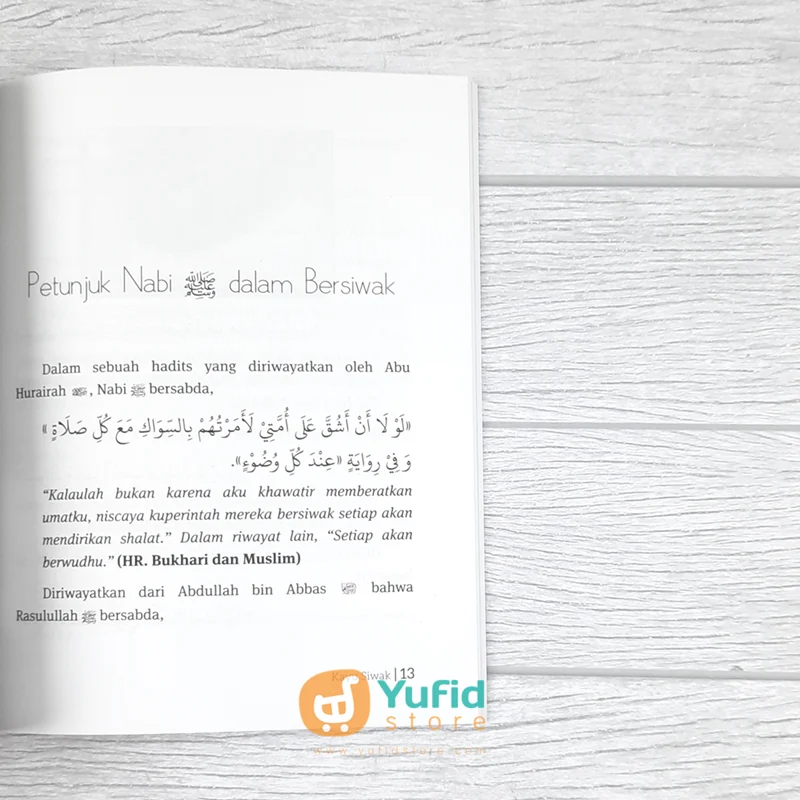 Petunjuk Nabi ﷺ dalam Bersiwak
Dalam sebuah hadits yang diriwayatkan oleh Abu
Hurairah, Nabi ﷺ bersabda,
«لَوْ لَا أَنْ أَشُقَّ عَلَى أُمَّتِيْ لَأَمَرْتُهُمْ بِالسِّوَاكِ مَعَ كُلِّ صَلَاةٍ»
وَ فِيْ رِوَايَةٍ «عِنْدَ كُلِّ وُضُوْءٍ».
“Kalaulah bukan karena aku khawatir memberatkan
umatku, niscaya kuperintah mereka bersiwak setiap akan
mendirikan shalat.” Dalam riwayat lain, “Setiap akan
berwudhu.” (HR. Bukhari dan Muslim)
Diriwayatkan dari Abdullah bin Abbas bahwa
Rasulullah ﷺ bersabda,
Siwak | 13
Yufid
store
www.yufidstore.com